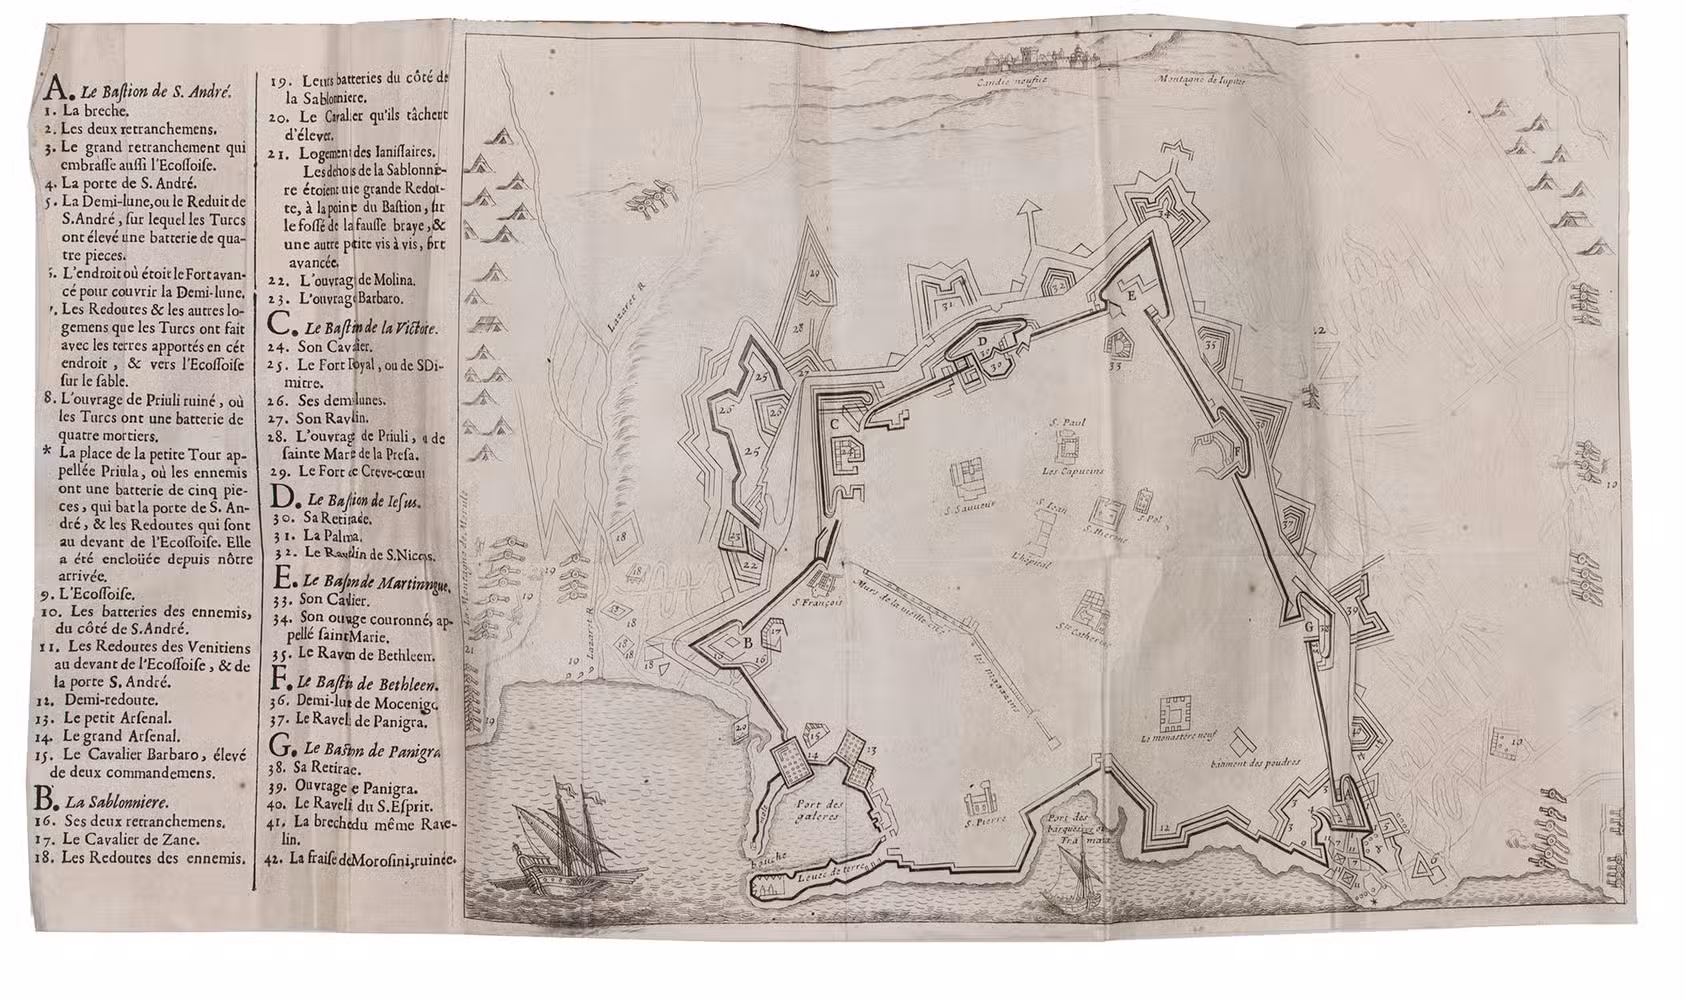 A. Le Baſtion de S. André.
1. La breche.
2. Les deux retranchemens.
3. Le grand retranchement qui
embraſſe auſſi l'Ecoſſoiſe.
4. La porte de S. André.
5. La Demi-lune, ou le Reduit de
S. André, ſur lequel les Turcs
ont élevé une batterie de qua-
tre pieces.
L'endroit où étoit le Fort avan-
cé pour couvrir la Demi-lune.
Les Redoutes & les autres lo-
gemens que les Turcs ont fait
avec les terres apportés en cét
endroit, & vers l'Ecoſſoiſe
ſur le ſable.
8. L'ouvrage de Priuli ruiné, où
les Turcs ont une batterie de
quatre mortiers.
* La place de la petite Tour ap-
pellée Priula, où les ennemis
ont une batterie de cinq pie-
ces, qui bat la porte de S. An-
dré, & les Redoutes qui ſont
au devant de l'Ecoſſoiſe. Elle
a été enclouée depuis nôtre
arrivée.
9. L'Ecoſſoiſe.
10. Les batteries des ennemis,
du côté de S. André.
11. Les Redoutes des Venitiens
au devant de l'Ecoſſoiſe, & de
la porte S. André.
12. Demi-redoute.
13. Le petit Arſenal.
14. Le grand Arſenal.
15. Le Cavalier Barbaro, élevé
de deux commandemens.
B. La Sablonniere.
16. Ses deux retranchemens.
17. Le Cavalier de Zane.
18. Les Redoutes des ennemis.
19. Leurs batteries du côté de
la Sablonniere.
20. Le Cavalier qu'ils tâchent
d'élever.
21. Logement des Ianiſſaires.
Les dehors de la Sablonnie-
re étoient une grande Redou-
te, à la pointe du Baſtion, ſur
le foſſé de la fauſſe braye, &
une autre petite vis à vis, fort
avancée.
22. L'ouvrage de Molina.
23. L'ouvrage Barbaro.
C. Le Baſtion de la Victoire.
24. Son Cavalier.
25. Le Fort Royal, ou de S Di-
mitre.
26. Ses demi lunes.
27. Son Ravelin.
28. L'ouvrage de Priuli, ou de
ſainte Marie de la Preſa.
29. Le Fort de Creve-cœur
D. Le Baſtion de Ieſus.
30. Sa Retirade.
31. La Palma.
32. Le Ravelin de S. Nicolas.
E. Le Baſtion de Martinengue.
33. Son Cavalier.
34. Son ouvrage couronné, ap-
pellé ſaint Marie.
35. Le Ravelin de Bethleem.
F. Le Baſtion de Bethleen.
36. Demi-lune de Mocenigo
37. Le Ravelin de Panigra.
G. Le Baſtion de Panigra
38. Sa Retirade.
39. Ouvrage de Panigra.
40. Le Ravelin du S. Eſprit.
41. La breche du même Rave-
lin.
42. La fraiſe de Moroſini, ruinée.
Candie neufue
Montagne de Iupiter
Lazaret R
Lazaret R
S. Paul
Les Capucins
S. Sauueur
S. Iean
S. Hierome
S. Pol
L'hôpital
S. François
Murs de la vieille cité
les magazins
Ste Catherine
Le monastere neuf
batiment des poudres
S. Pierre
Port des
galeres
Port des
bouche
Leuee de terre
A
B
C
D
E
F
G